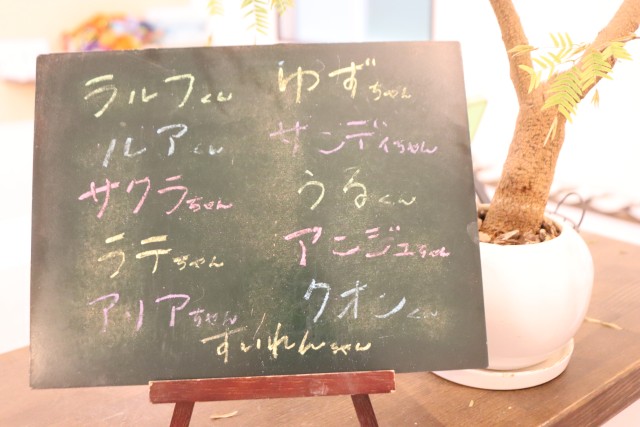 ラルフくん
ルアくん
サクラちゃん
ラテちゃん
アリアちゃん
ゆずちゃん
サンディちゃん
うるくん
アンジュちゃん
クオンくん
すいれんちゃん